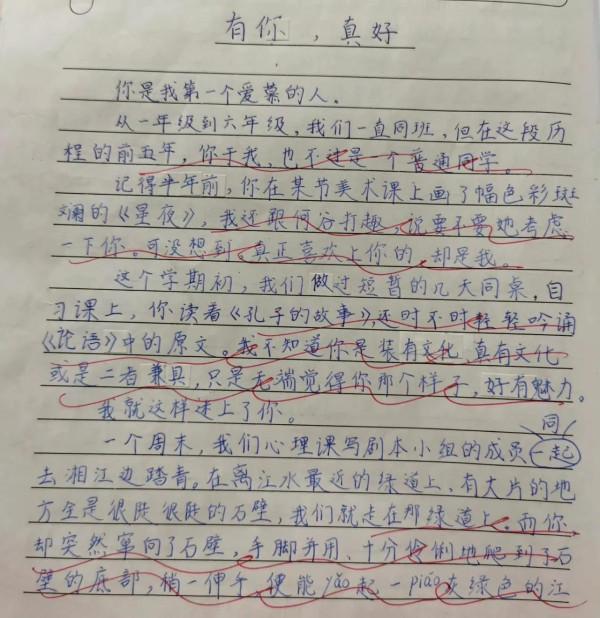 有你，真好
你是我第一个爱慕的人。
从一年级到六年级，我们一直同班，但在这段历
程的前五年，你于我，也不过是一个普通同学。
记得半年前，你在某节美术课上画了幅色彩斑
斓的《星夜》，我还跟何谷打趣，说要不要她考虑
一下你。可没想到，真正喜欢上你的，却是我。
这个学期初，我们做过短暂的几天同桌，自
习课上，你读着《孔子的故事》，还时不时轻轻吟诵
《论语》中的原文。我不知道你是装有文化，真有文化
或是二者兼具，只是无端觉得你那个样子，好有魅力。
我就这样迷上了你。
同
一个周末，我们心理课写剧本小组的成员一起
去湘江边踏青。在离江水最近的绿道上，有大片的地
方全是很陡很陡的石壁，我们就走在那绿道上。而你，
却突然窜向了石壁，手脚并用、十分伶俐地爬到了石
壁的底部，稍一伸手，便能yǎo起一piāo灰绿色的江